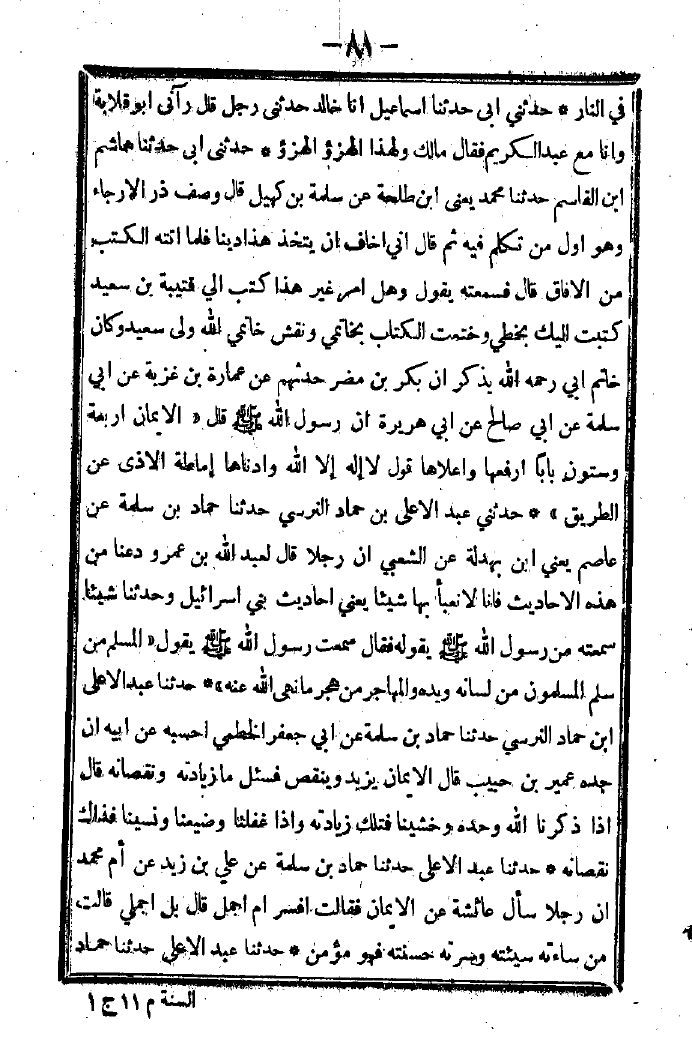 — ٨١ —
في النار * حدثني ابى حدثنا اسماعيل انا خالد حدثنى رجل قال رآنى ابو قلابة
وانا مع عبد الكريم فقال مالك ولهذا الهزؤ الهزؤ * حدثنى ابى حدثنا هاشم
ابن القاسم حدثنا محمد يعنى ابن طلحة عن سلمة بن كهيل قال وصف ذر الارجاء
وهو اول من تكلم فيه ثم قال اني اخاف ان يتخذ هذا دينا فلما اتته الكتب
من الافاق قال فسمعته يقول وهل امر غير هذا كتب الي قتيبة بن سعيد
كتبت اليك بخطي وختمت الكتاب بخاتمي ونقش خاتمي الله ولى سعيد وكان
خاتم ابي رحمه الله يذكر ان بكر بن مضر حدثهم عن عمارة بن غزية عن ابي
سلمة عن ابي صالح عن ابي هريرة ان رسول الله ﷺ قال « الايمان اربعة
وستون بابا ارفعها واعلاها قول لا إله إلا الله وادناها إماطة الاذى عن
الطريق » * حدثني عبد الاعلى بن حماد النرسي حدثنا حماد بن سلمة عن
عاصم يعني ابن بهدلة عن الشعبي ان رجلا قال لعبد الله بن عمرو دعنا من
هذه الاحاديث فانا لا نعبأ بها شيئا يعني احاديث بني اسرائيل وحدثنا شيئا
سمعته من رسول الله ﷺ يقوله فقال سمعت رسول الله ﷺ يقول « المسلم من
سلم المسلمون من لسانه ويده والمهاجر من هجر ما نهى الله عنه » * حدثنا عبد الاعلى
ابن حماد النرسي حدثنا حماد بن سلمة عن ابي جعفر الخطمي احسبه عن ابيه ان
جده عمير بن حبيب قال الايمان يزيد وينقص فسئل ما زيادته ونقصانه قال
اذا ذكرنا الله وحده وخشينا فتلك زيادته واذا غفلنا وضيعنا ونسينا فذلك
نقصانه * حدثنا عبد الاعلى حدثنا حماد بن سلمة عن علي بن زيد عن أم محمد
ان رجلا سأل عائشة عن الايمان فقالت افسر ام اجمل قال بل اجملي قالت
من ساءته سيئته وسرته حسنته فهو مؤمن * حدثنا عبد الاعلى حدثنا حماد
السنة م ١١ ج ١